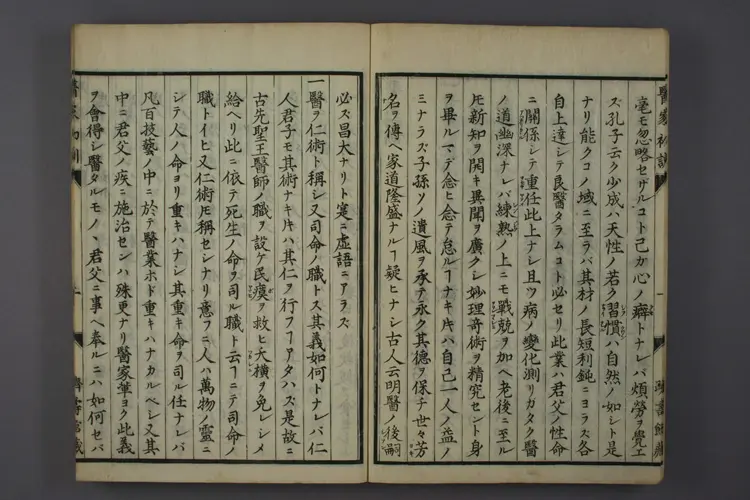 毫モ忽略セザルコト己カ心ノ癖トナレバ煩勞ヲ覺エ
ズ孔子云ク少成ハ天性ノ若ク習慣ハ自然ノ如シト是
ナリ能クコノ域ニ至ラバ其材ノ長短利鈍ニヨラズ各
自上達シテ良醫タラムコト必セリ此業ハ君父ノ性命
ニ關係シテ重任此上ナシ且ツ病ノ變化測リガタク醫
ノ道幽深ナレバ練熟ノ上ニモ戰兢ヲ加ヘ老後ニ至ル
𪜈新知ヲ開キ異聞ヲ廣クシ妙理奇術ヲ精究セント身
ヲ畢ルマデ念ヒ念テ怠ルヿナキ𪜈ハ自己一人ノ益ノ
ミナラズ子孫ソノ遺風ヲ承テ永ク其德ヲ保チ世々芳
名ヲ傳ヘ家道隆盛ナルヿ疑ヒナシ古人云明醫ノ後嗣
必ズ昌大ナリト寔ニ虛語ニアラズ
一醫ヲ仁術ト稱シ又司命ノ職トス其義如何トナレバ仁
人君子モ其術ナキ𪜈ハ其仁ヲ行フヿアタハズ是故ニ
古先聖王醫師ノ職ヲ設ケ民瘼ヲ救ヒ夭橫ヲ免レシメ
給ヘリ此ニ依テ死生ノ命ヲ司ル職ト云フニテ司命ノ
職トイヒ又仁術𪜈稱セシナリ意フニ人ハ萬物ノ靈ニ
シテ人ノ命ヨリ重キハナシ其重キ命ヲ司ル任ナレバ
凡百技藝ノ中ニ於テ醫業ホド重キハナカルベシ又其
中ニ君父ノ疾ニ施治センハ殊更ナリ醫家輩ヨク此義
ヲ會得シ醫タルモノヽ君父ニ事ヘ奉ルニハ如何セバ